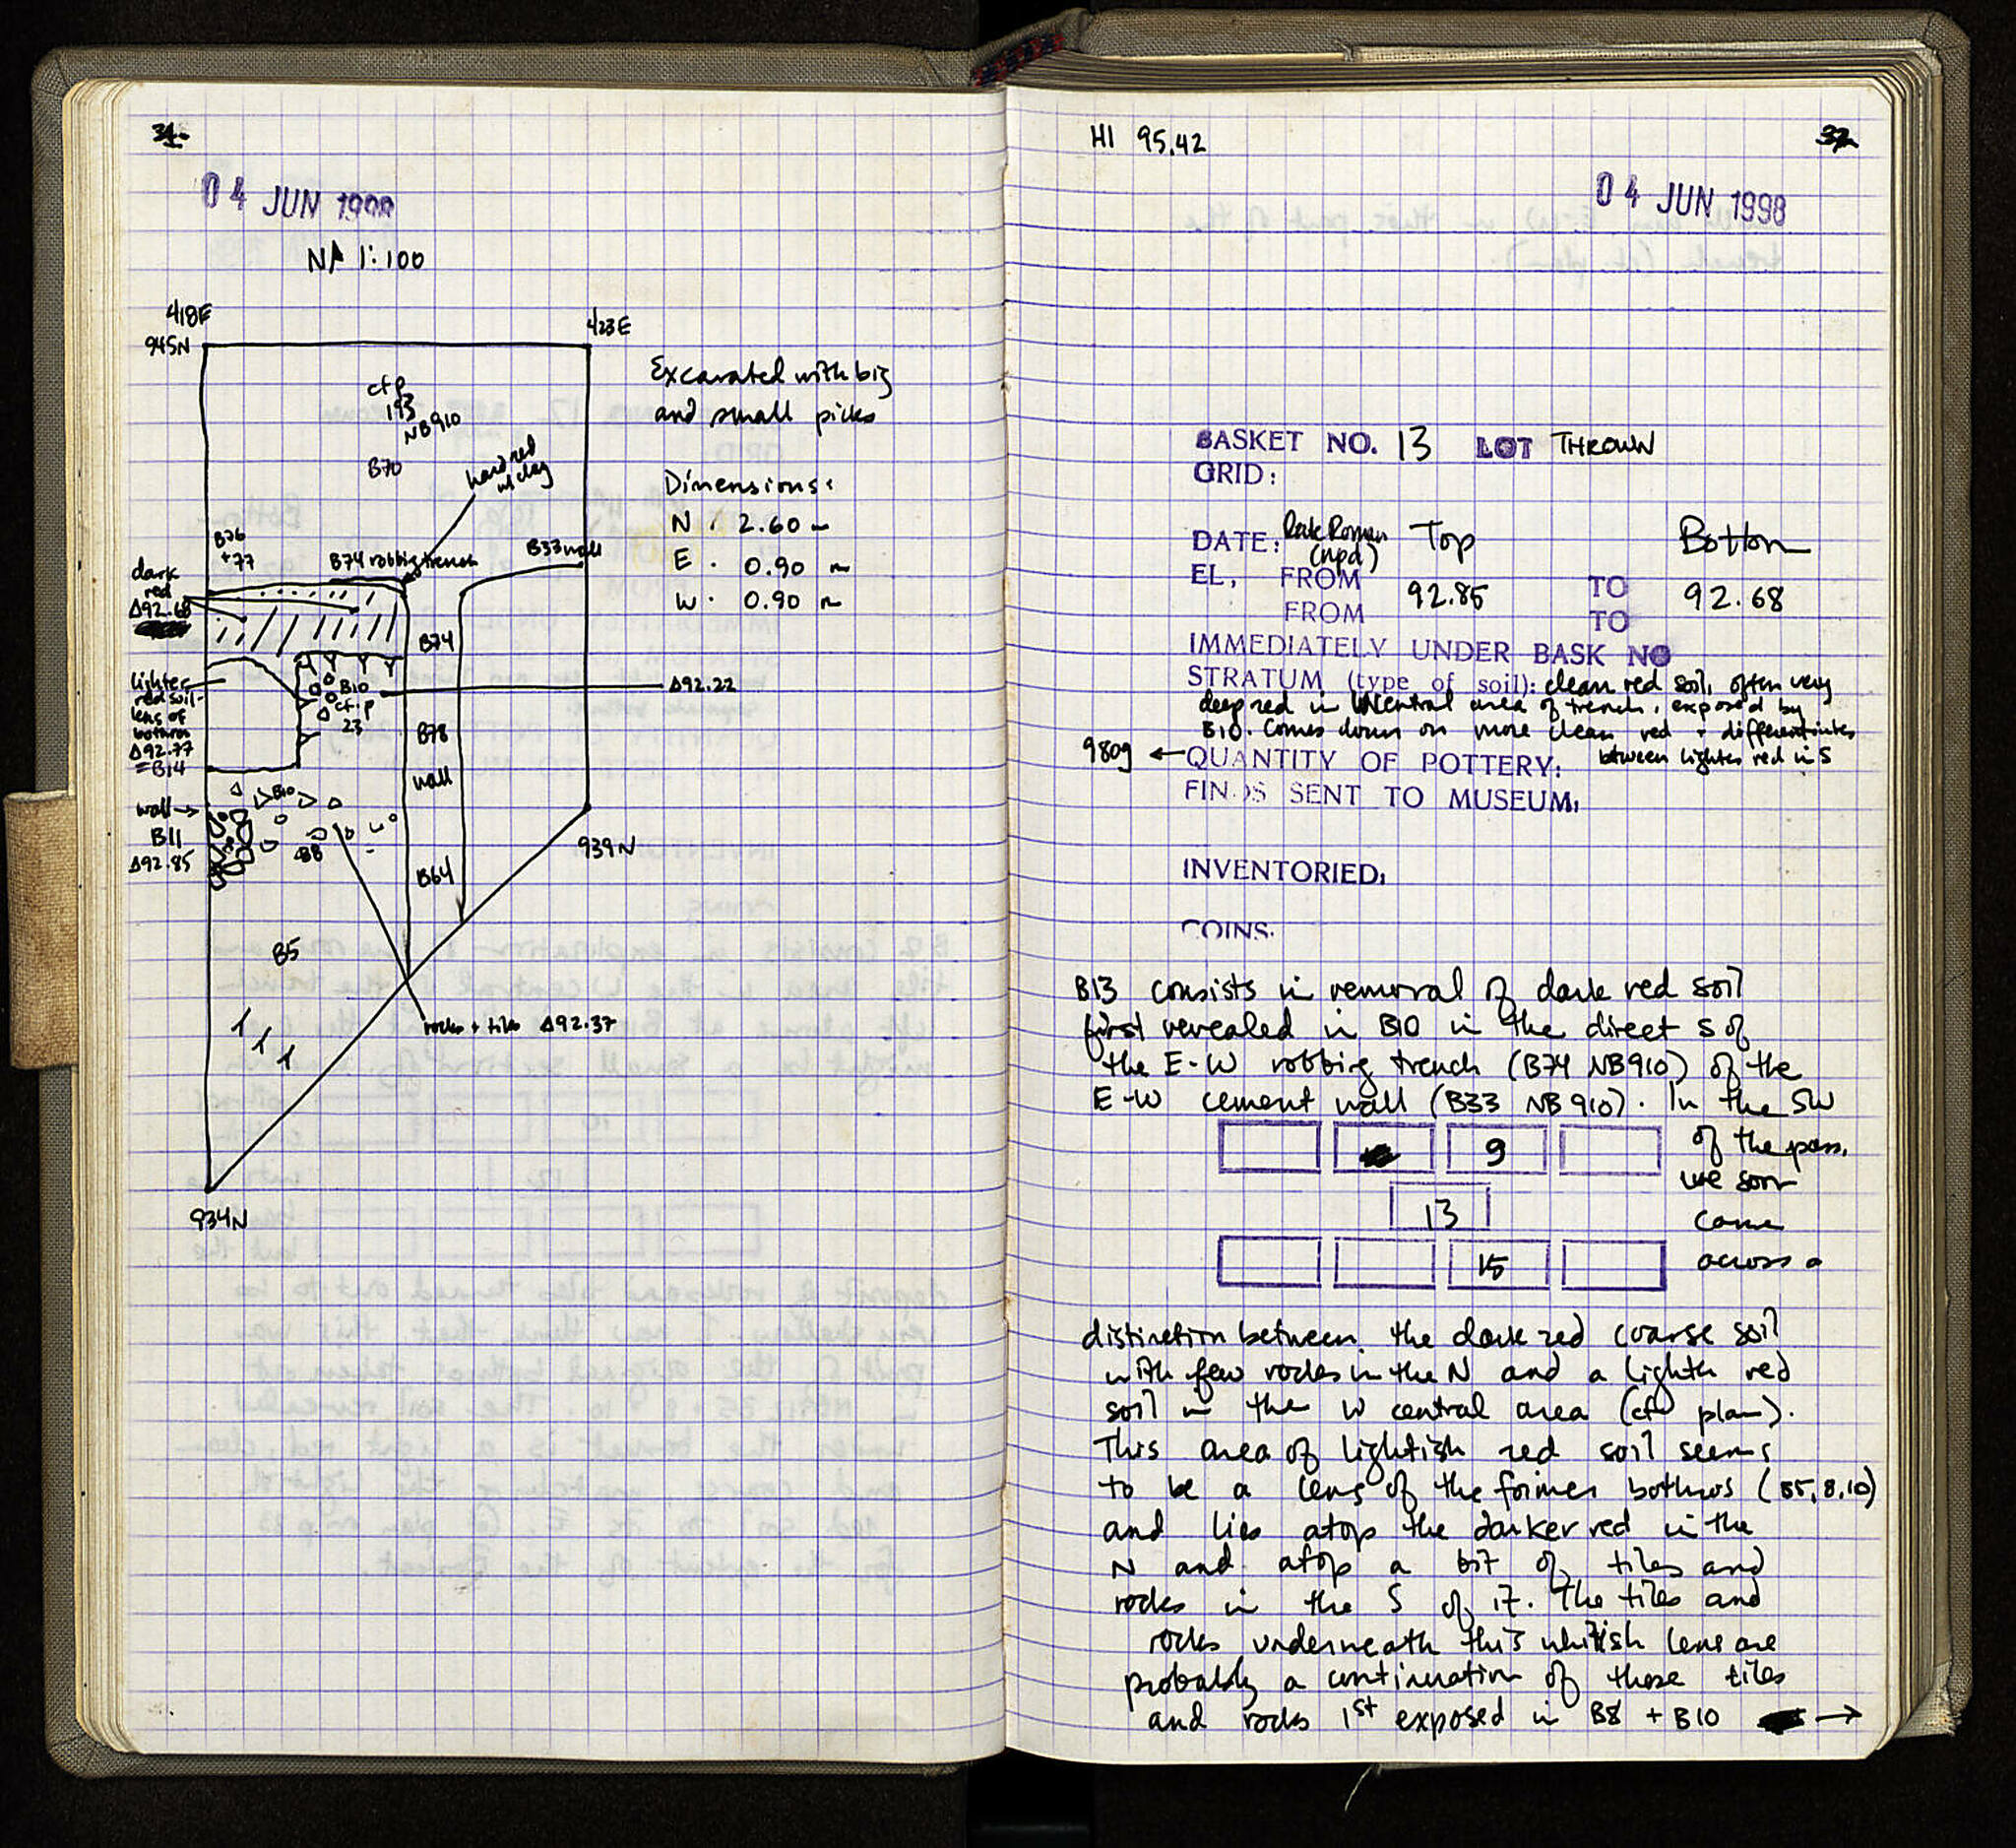 31
04 JUN 1998
N 1:100
418E
423E
945N
Excavated with big
and small picks
cf p
193
NB910
B70
hard red
w clay
Dimensions:
N . 2.60 m
E . 0.90 m
W . 0.90 m
B76
+77
B74 robbing trench
B33 wall
dark
red
Δ92.68
B74
lighter
red soil-
lens of
bothros
Δ92.77
=B14
B10
cf. p
23
Δ92.22
B78
wall
B10
wall→
B11
Δ92.85
B8
B64
939N
B5
rocks + tiles Δ92.37
934N
HI 95.42
32
04 JUN 1998
BASKET NO. 13 LOT THROWN
GRID:
DATE: Late Roman (npd) Top Bottom
EL, FROM 92.85 TO 92.68
FROM TO
IMMEDIATELY UNDER BASK NO
STRATUM (type of soil): clean red soil, often very
deep red in central area of trench, exposed by
B10. Comes down on more clean red + differentiates
between lighter red in S
980g ← QUANTITY OF POTTERY:
FINDS SENT TO MUSEUM:
INVENTORIED:
COINS:
B13 consists in removal of dark red soil
first revealed in B10 in the direct S of
the E-W robbing trench (B74 NB910) of the
E-W cement wall (B33 NB910). In the SW
of the pass,
9
we soon
13
came
15
across a
distinction between the dark red coarse soil
with few rocks in the N and a lighter red
soil in the W central area (cf plan).
This area of lightish red soil seems
to be a lens of the former bothros (B5,8,10)
and lies atop the darker red in the
N and atop a bit of tiles and
rocks in the S of it. The tiles and
rocks underneath this whitish lens are
probably a continuation of those tiles
and rocks 1st exposed in B8 + B10 →